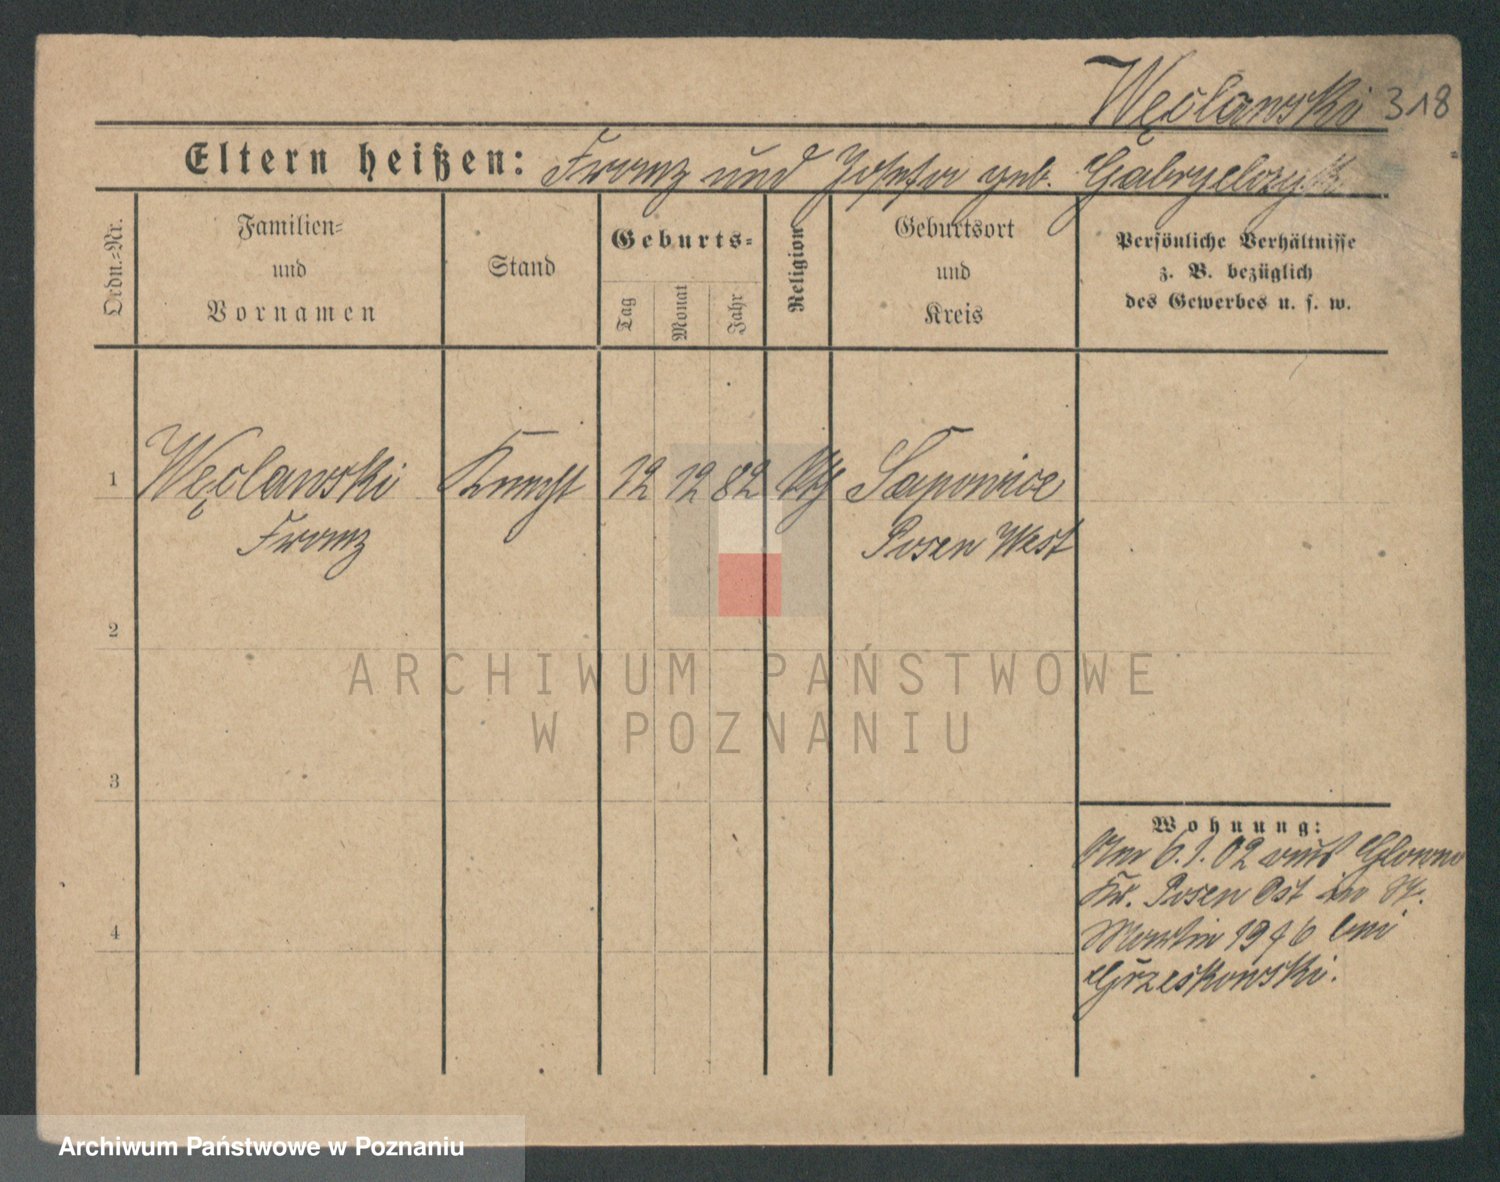 Węclawski 318
Eltern heißen: Franz und Josefa geb. Gabryelczyk
Ordn.-Nr.
Familien-
und
Vornamen
Stand
Geburts-
Tag
Monat
Jahr
Religion
Geburtsort
und
Kreis
Persönliche Verhältnisse
z. B. bezüglich
des Gewerbes u. s. w.
1 Węclawski Knecht 12 12 82 kth Sapowice
Franz Posen West
2
3
4
Wohnung:
Am 6.1.02 aus Glowno
Kr. Posen Ost in St.
Martin 1946 bei
Grzeskowski.
ARCHIWUM PAŃSTWOWE
W POZNANIU
Archiwum Państwowe w Poznaniu